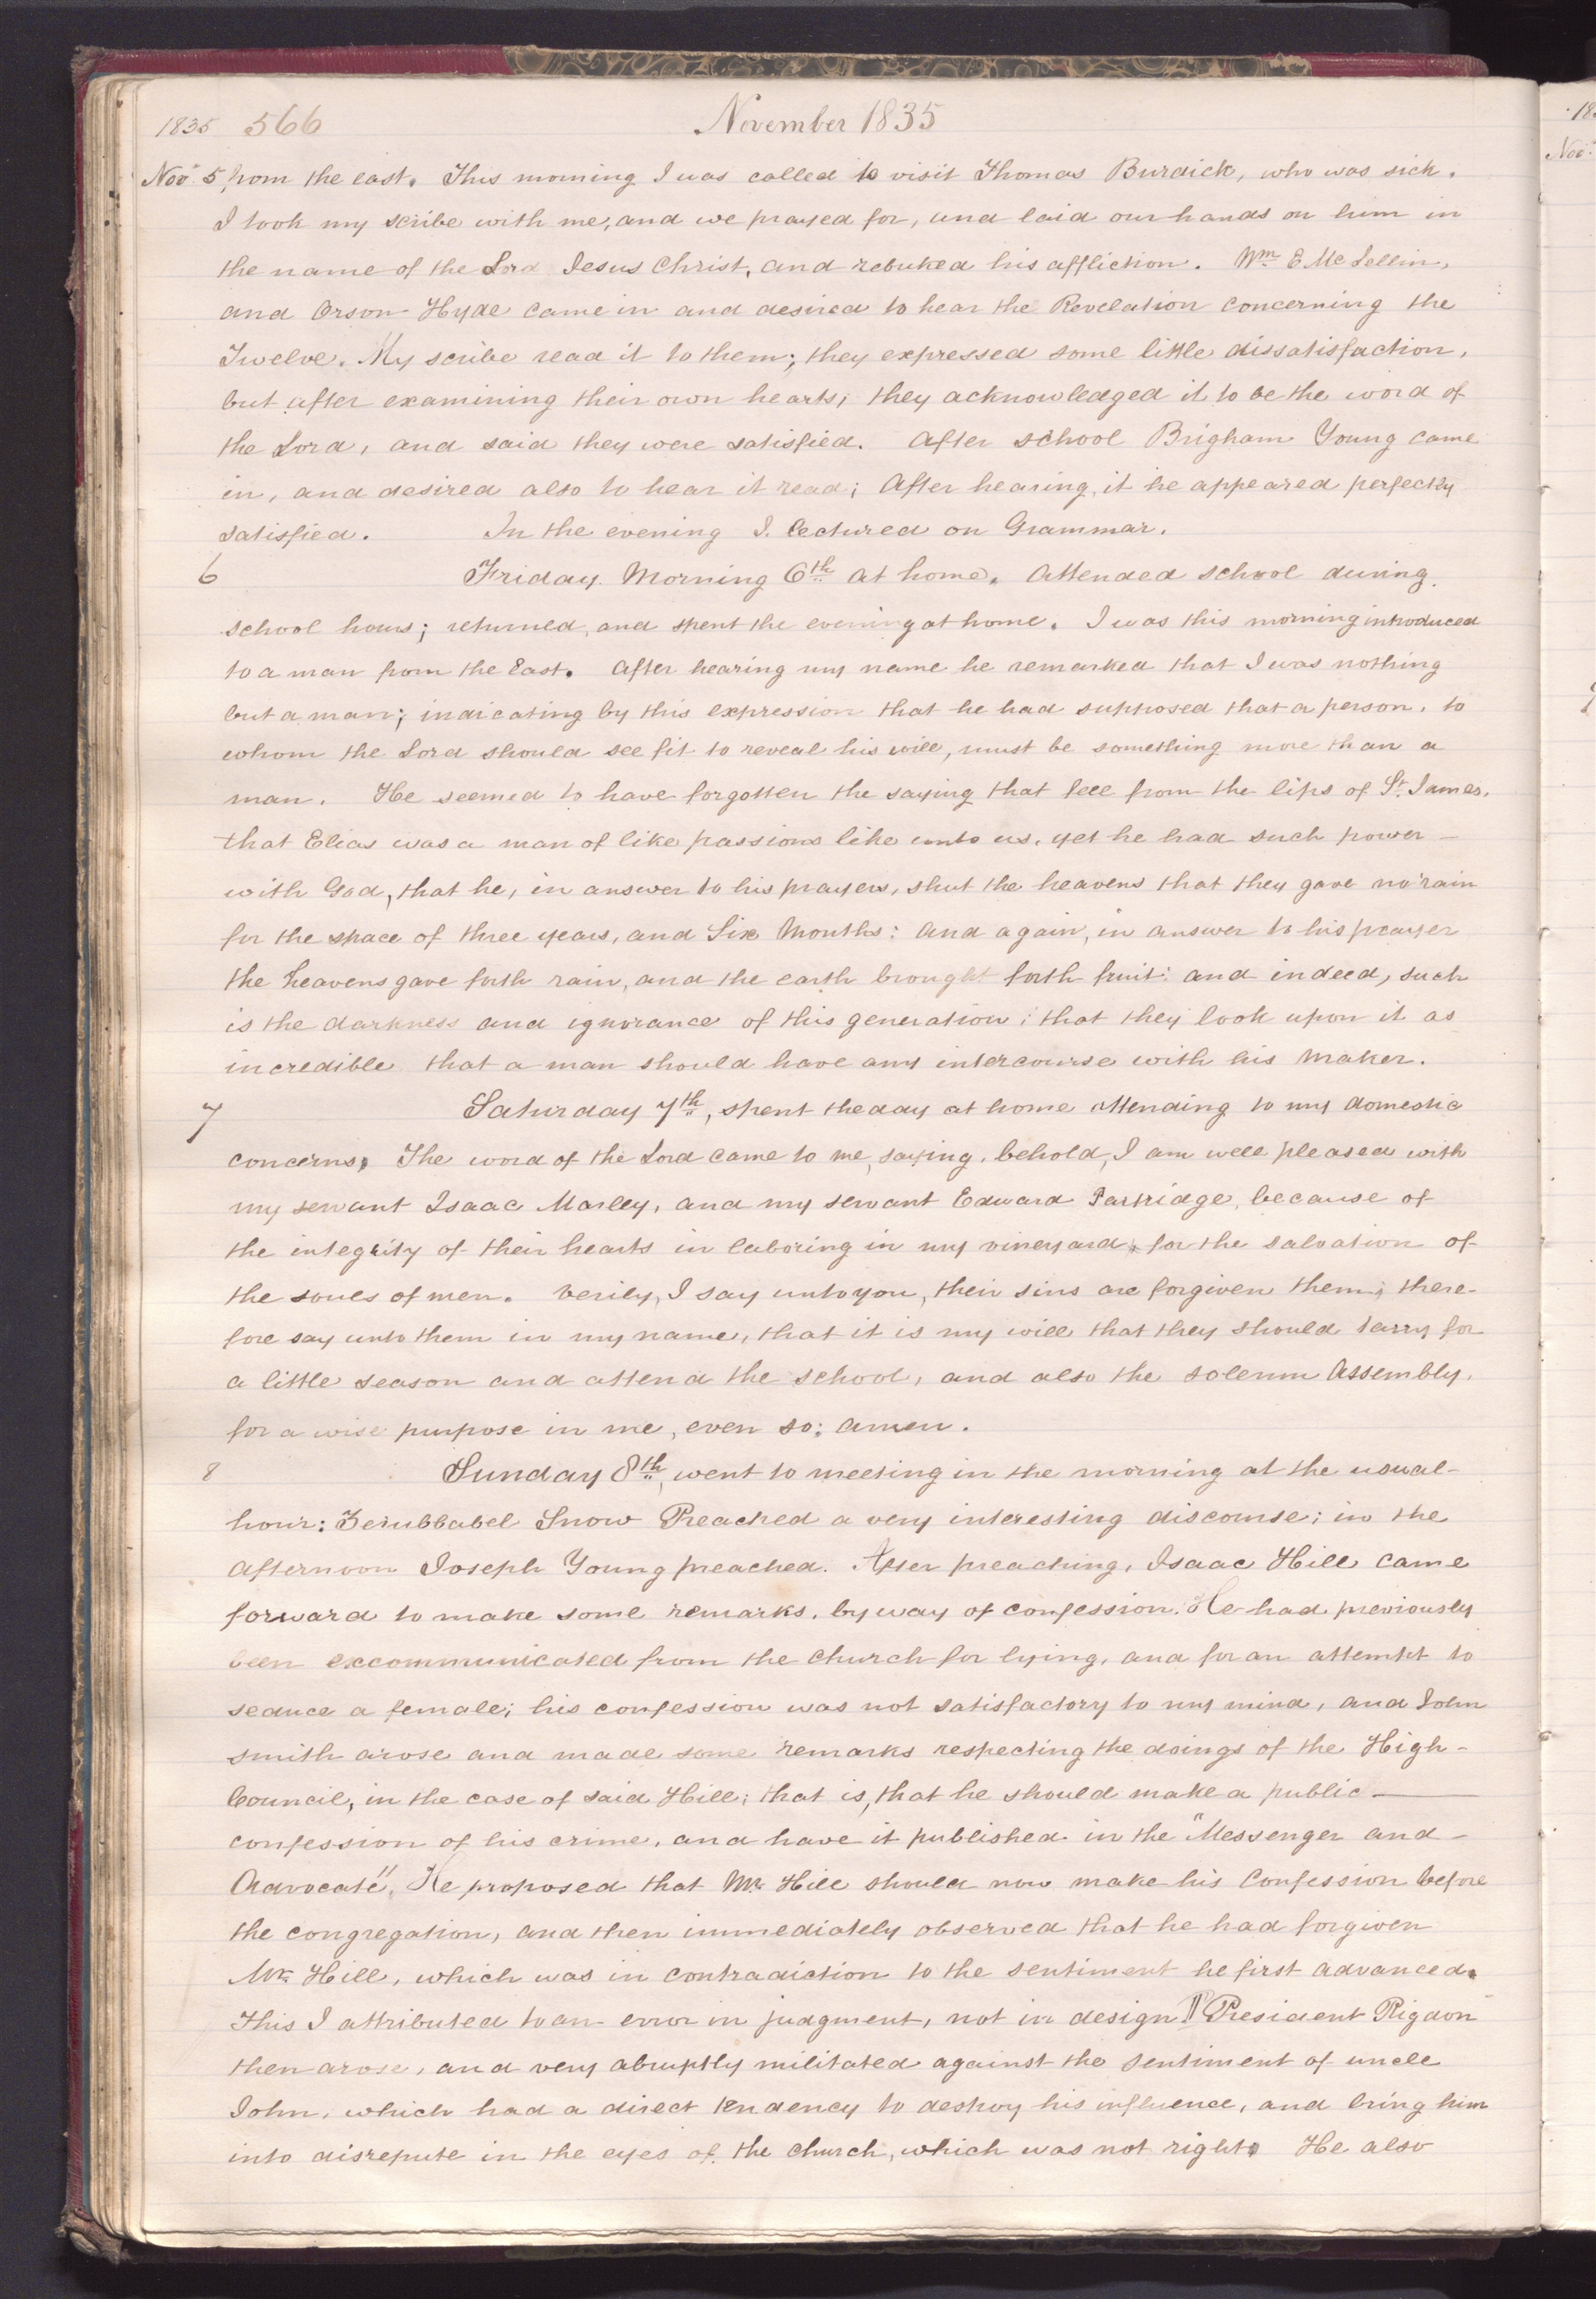 1835 566 November 1835
Nov. 5 from the east. This morning I was called to visit Thomas Burdick, who was sick.
I took my scribe with me, and we prayed for, and laid our hands on him in
the name of the Lord Jesus Christ, and rebuked his affliction. Wm. E. Mc Lellin,
and Orson Hyde came in and desired to hear the Revelation concerning the
Twelve. My scribe read it to them; they expressed some little dissatisfaction,
but after examining their own hearts, they acknowledged it to be the word of
the Lord, and said they were satisfied. After school Brigham Young came
in, and desired also to hear it read; After hearing, it he appeared perfectly
satisfied. In the evening I. lectured on Grammar.
6 Friday Morning 6th at home. Attended school during
school hours; returned, and spent the evening at home. I was this morning introduced
to a man from the East. After hearing my name he remarked that I was nothing
but a man; indicating by this expression that he had supposed that a person, to
whom the Lord should see fit to reveal his will, must be something more than a
man. He seemed to have forgotten the saying that fell from the lips of St. James,
that Elias was a man of like passions like unto us, yet he had such power —
with God, that he, in answer to his prayers, shut the heavens that they gave no rain
for the space of three years, and Six Months: and again, in answer to his prayer
the heavens gave forth rain, and the earth brought forth fruit: and indeed, such
is the darkness and ignorance of this generation; that they look upon it as
incredible that a man should have any intercourse with his Maker.
7 Saturday 7th, spent the day at home attending to my domestic
concerns. The word of the Lord came to me, saying, behold, I am well pleased with
my servant Isaac Morley, and my servant Edward Partridge, because of
the integrity of their hearts in laboring in my vineyard, for the salvation of
the souls of men. Verily, I say unto you, their sins are forgiven them; there-
fore say unto them in my name, that it is my will that they should tarry for
a little season and attend the school, and also the solemn Assembly,
for a wise purpose in me, even so; amen.
8 Sunday 8th, went to meeting in the morning at the usual-
hour: Zerubbabel Snow Preached a very interesting discourse; in the
afternoon Joseph Young preached. After preaching, Isaac Hill came
forward to make some remarks, by way of confession. He had previously
been excommunicated from the church for lying, and for an attempt to
seduce a female; his confession was not satisfactory to my mind, and John
smith arose and made some remarks respecting the doings of the High-
Council, in the case of said Hill; that is, that he should make a public —
confession of his crime, and have it published in the "Messenger and -
Advocate". He proposed that Mr. Hill should now make his Confession before
the congregation, and then immediately observed that he had forgiven
Mr. Hill, which was in contradiction to the sentiment he first advanced.
This I attributed to an error in judgment, not in design ¶ President Rigdon
then arose, and very abruptly militated against the sentiment of uncle
John, which had a direct tendency to destroy his influence, and bring him
into disrepute in the eyes of the church, which was not right. He also